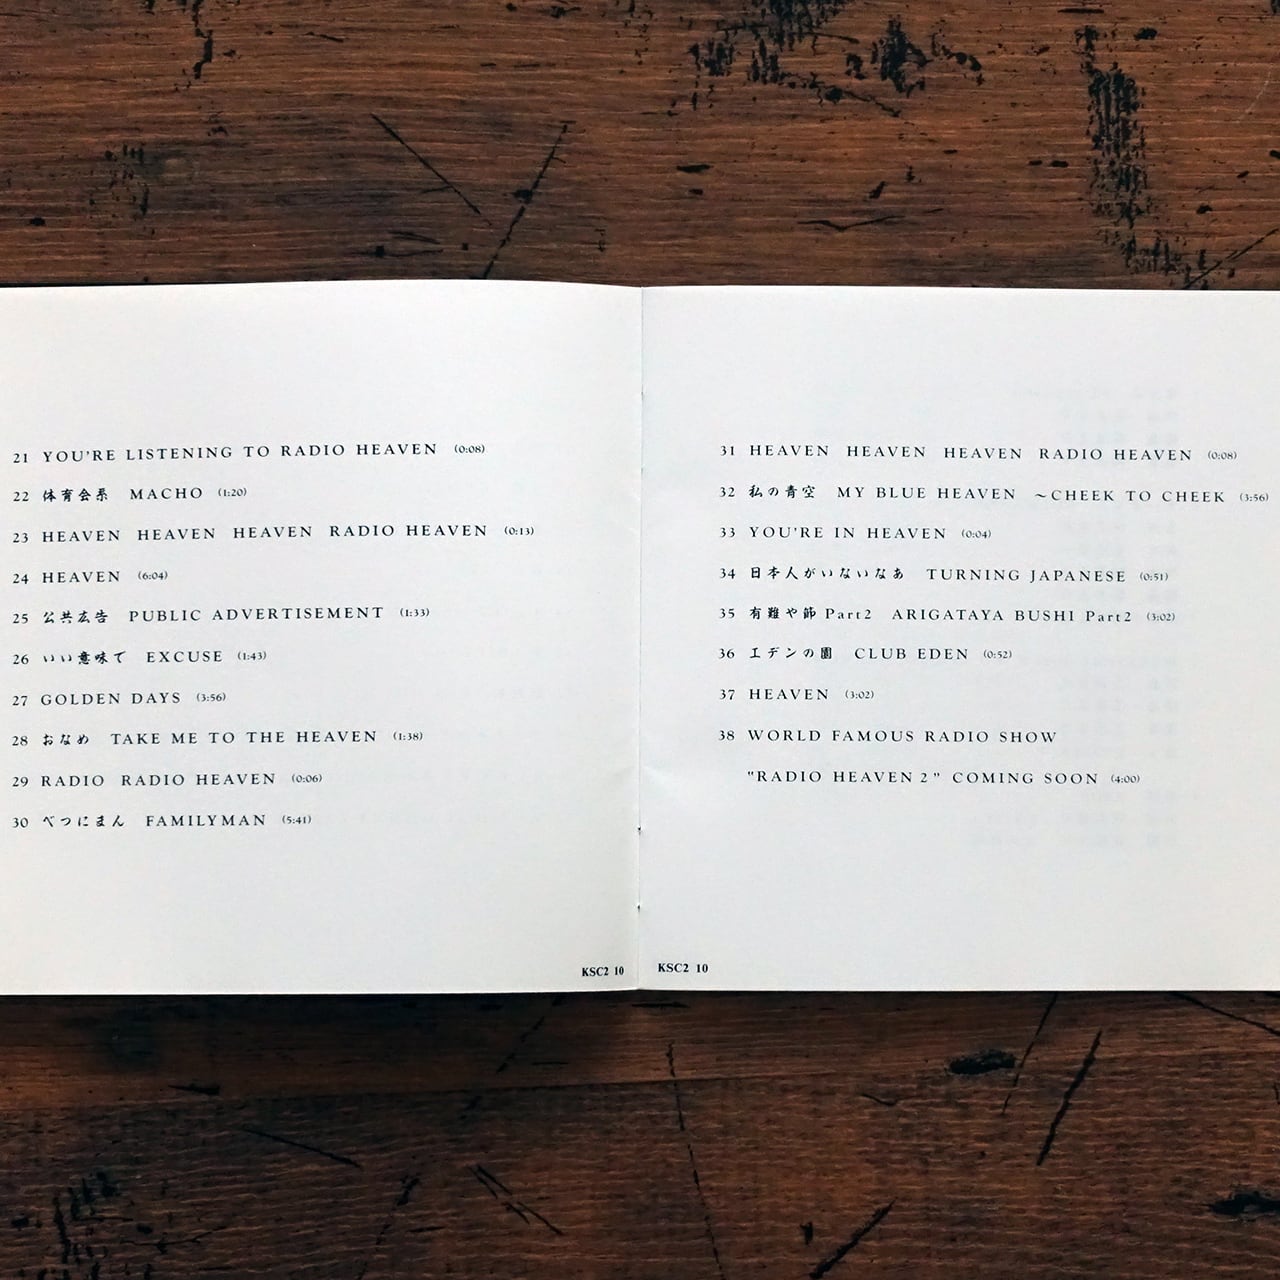 21 YOU'RE LISTENING TO RADIO HEAVEN (0:08)
22 体育会系 MACHO (1:20)
23 HEAVEN HEAVEN HEAVEN RADIO HEAVEN (0:13)
24 HEAVEN (6:04)
25 公共広告 PUBLIC ADVERTISEMENT (1:33)
26 いい意味で EXCUSE (1:43)
27 GOLDEN DAYS (3:56)
28 おなめ TAKE ME TO THE HEAVEN (1:38)
29 RADIO RADIO HEAVEN (0:06)
30 べつにまん FAMILYMAN (5:41)
KSC2 10
31 HEAVEN HEAVEN HEAVEN RADIO HEAVEN (0:08)
32 私の青空 MY BLUE HEAVEN ~CHEEK TO CHEEK (3:56)
33 YOU'RE IN HEAVEN (0:04)
34 日本人がいないなあ TURNING JAPANESE (0:51)
35 有難や節 Part2 ARIGATAYA BUSHI Part2 (3:02)
36 エデンの園 CLUB EDEN (0:52)
37 HEAVEN (3:02)
38 WORLD FAMOUS RADIO SHOW
"RADIO HEAVEN 2" COMING SOON (4:00)
KSC2 10